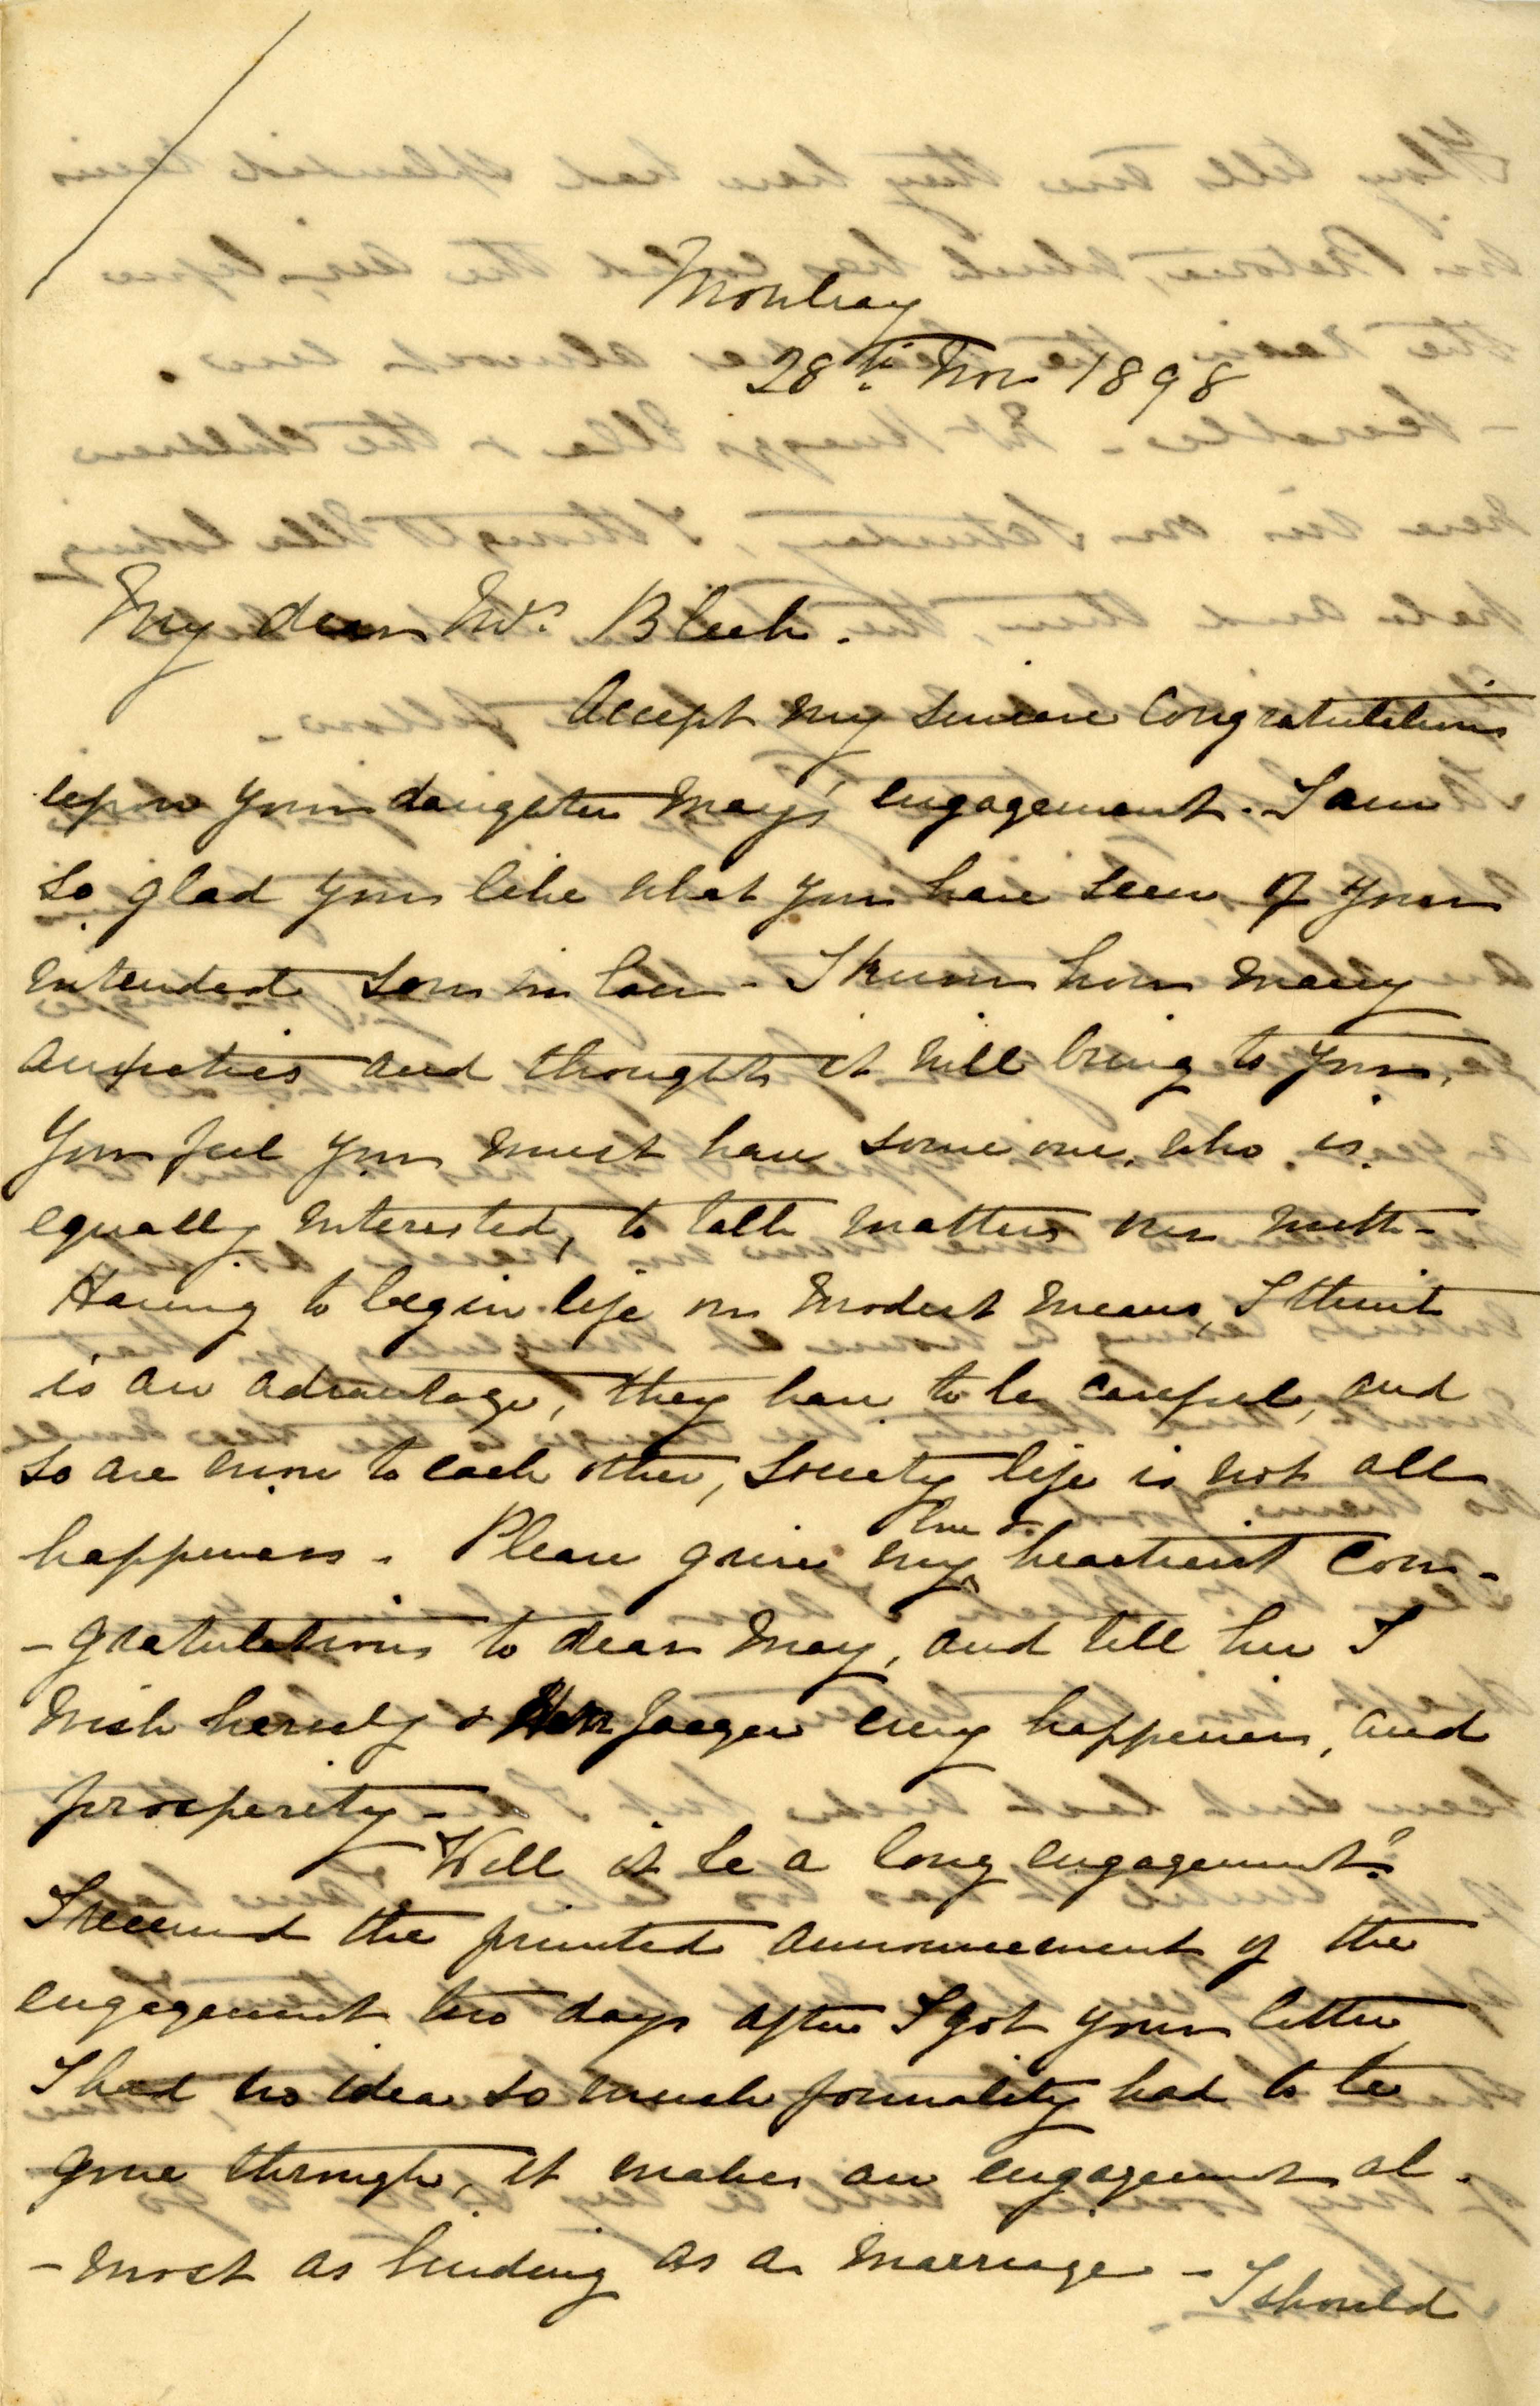 Mowbray
28th Nov 1898
My dear Mrs. Bleek.
Accept my sincere congratulations
upon your daughter May's engagement. I am
so glad you like what you have seen of your
intended son in law - I know how many
anxieties and thoughts it will bring to you,
You feel you must have some one, who is
equally interested, to talk matters over with -
Having to begin life on modest means, I think
is an advantage, they have to be careful, and
so are more to each other, Society life is not all
happiness. Please give my love & heartiest con-
-gratulations to dear May, and tell her I
wish herself & Herr Jaeger every happiness, and
prosperity -
Will it be a long engagement?
I received the printed announcement of the
engagement two days after I got your letter,
I had no idea so much formality had to be
gone through, it makes an engagement al-
-most as binding as a marriage - I should